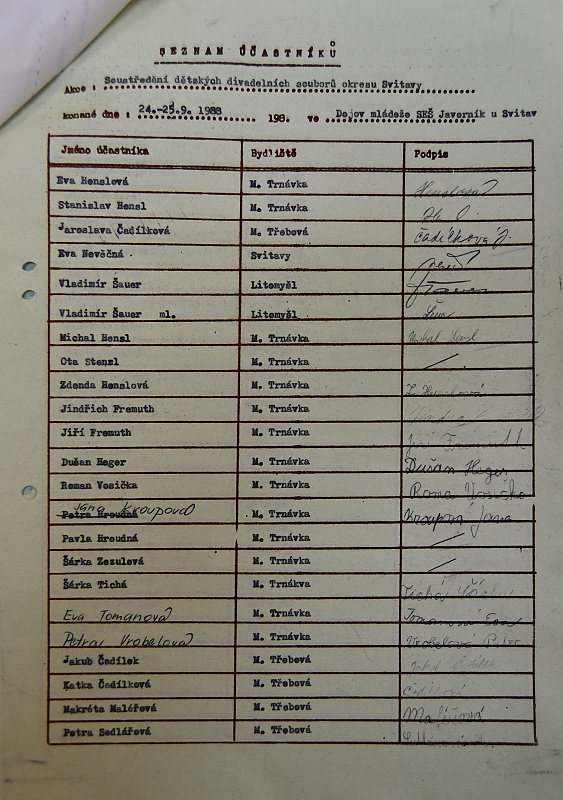 SEZNAM ÚČASTNÍKŮ
Akce : Soustředění dětských divadelních souborů okresu Svitavy
konané dne : 24.-25.9. 1988 198. ve Dojov mládeže SEŠ Javorník u Svitav
Jméno účastníka Bydliště Podpis
Eva Henslová M. Trnávka Henslová
Stanislav Hensl M. Trnávka
Jaroslava Čadílková M. Třebová Čadílková J.
Eva Nevěčná Svitavy
Vladimír Šauer Litomyšl
Vladimír Šauer ml. Litomyšl
Michal Hensl M. Trnávka Michal Hensl
Ota Stenzl M. Trnávka
Zdenda Henslová M. Trnávka Z. Henslová
Jindřich Fremuth M. Trnávka
Jiří Fremuth M. Trnávka Jiří Fremuth
Dušan Heger M. Trnávka Dušan Heger
Roman Vosička M. Trnávka
Petra Hroudná Jana Kroupová M. Trnávka Kroupová Jana
Pavla Hroudná M. Trnávka
Šárka Zezulová M. Trnávka
Šárka Tichá M. Trnákva Tichá
Eva Tomanová M. Trnávka Tomanová Eva
Petra Vrobelová M. Trnávka Vrobelová Petra
Jakub Čadílek M. Třebová Jakub Čadílek
Katka Čadílková M. Třebová Čadílková
Makréta Maléřová M. Třebová
Petra Sedlářová M. Třebová